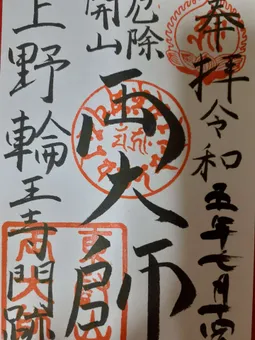 奉拝
令和五年七月十四
厄除
開山
両大師
上野輪王寺門跡